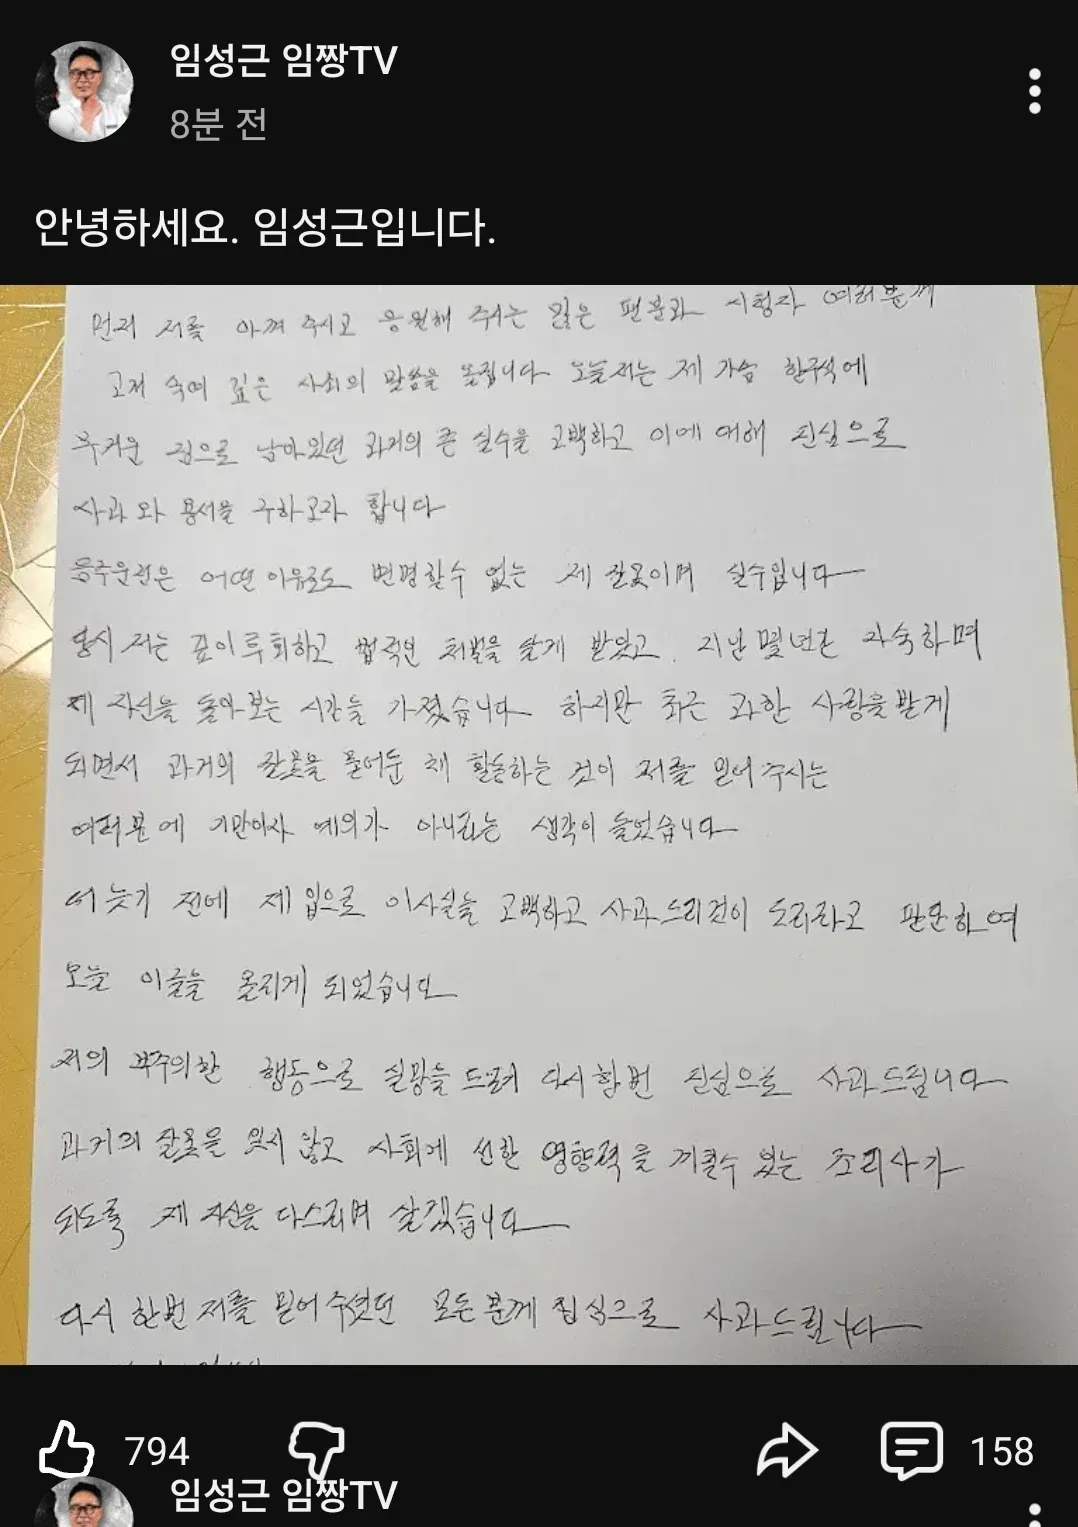 임성근 임짱TV
8분 전
안녕하세요. 임성근입니다.
먼저 저를 아껴 주시고 응원해 주시는 많은 팬분과 시청자 여러분께
고개 숙여 깊은 사죄의 말씀을 올립니다 오늘 저는 제 가슴 한구석에
무거운 짐으로 남아있던 과거의 큰 실수를 고백하고 이에 대해 진심으로
사과와 용서를 구하고자 합니다
음주운전은 어떤 이유로도 변명할수 없는 제 잘못이며 실수입니다
당시 저는 깊이 후회하고 법적인 처벌을 달게 받았고, 지난 몇년간 자숙하며
제 자신을 돌아보는 시간을 가졌습니다 하지만 최근 과한 사랑을 받게
되면서 과거의 잘못을 묻어둔 채 활동하는 것이 저를 믿어 주시는
여러분에 기만이자 예의가 아니라는 생각이 들었습니다
더 늦기 전에 제 입으로 이사실을 고백하고 사과드리것이 도리라고 판단하여
오늘 이글을 올리게 되었습니다
저의 부주의한 행동으로 실망을 드려 다시한번 진심으로 사과드립니다
과거의 잘못을 잊지 않고 사회에 선한 영향력을 끼칠수 있는 조리사가
되도록 제 자신을 다스리며 살겠습니다
다시 한번 저를 믿어 주셨던 모든 분께 진심으로 사과드립니다
794
158
임성근 임짱TV